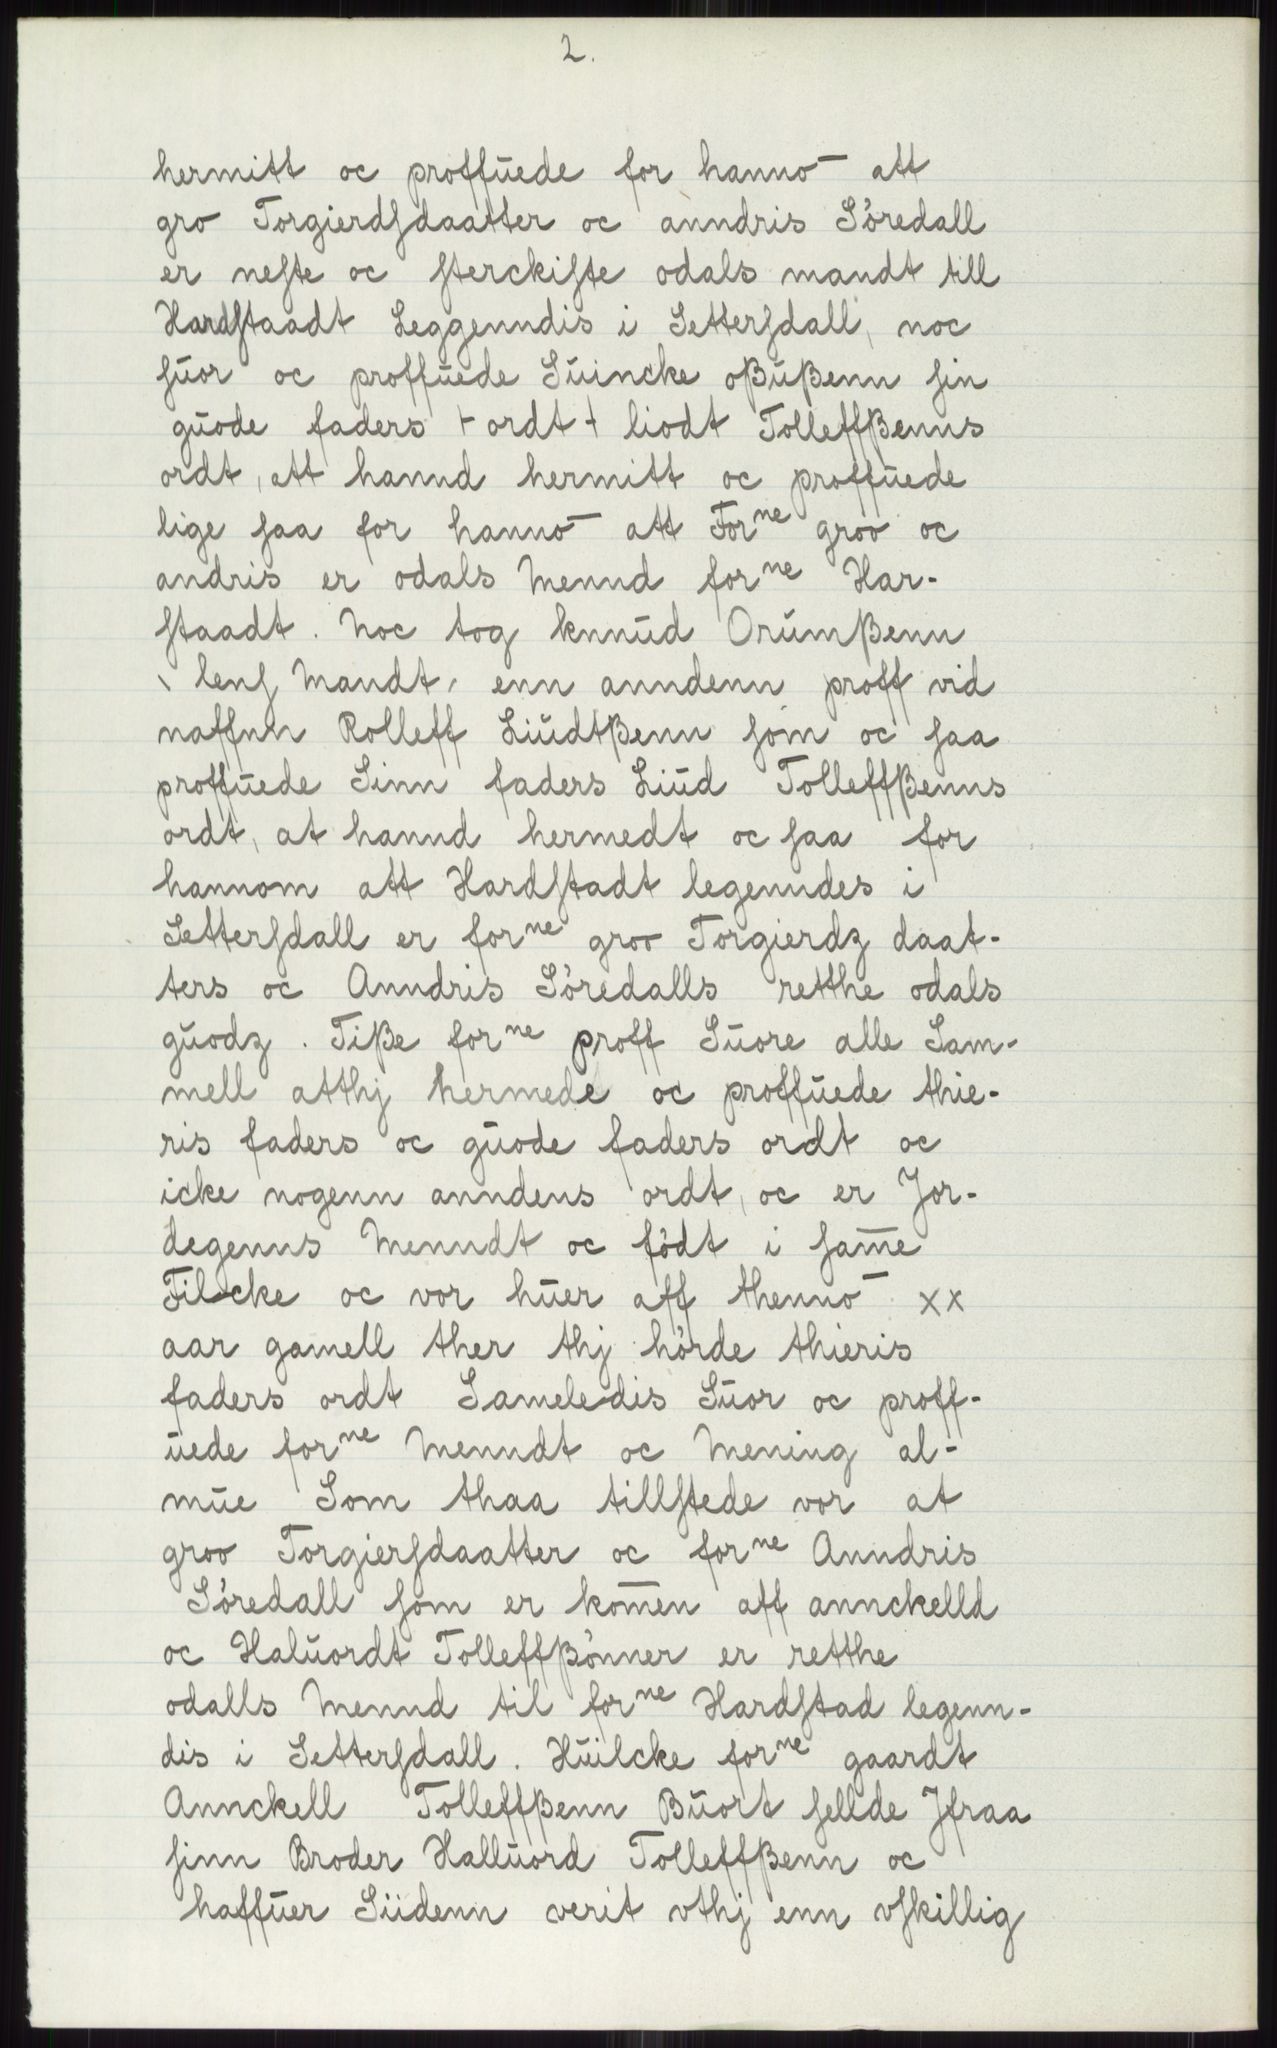 2.
hermitt oc proffuede for hanno̅ att
gro Torgierdſdaatter oc anndris Söredall
er neſte oc ſterckiſte odals mandt till
Hardſtaadt Leggenndis i Setterſdall, noc
ſuor oc proffuede Suincke oßußenn ſin
guode faders + ordt + liodt Tolleffßenns
ordt, att hannd hermitt oc proffuede
lige ſaa for hanno̅ att Forne groo oc
andris er odals Mennd forne Har-
ſtaadt. Noc tog knnud Orumßenn
lenſ Mandt, enn anndenn proff vid
naffnn Rolleff Liudtßenn ſom oc ſaa
proffuede Sinn faders Liud Tolleffßenns
ordt, at hannd hermedt oc ſaa for
hannom att Hardſtadt legenndes i
Setterſdall er forne groo Torgierdz daat-
ters oc Anndris Söredalls retthe odals
guodz. Tiße forne proff Suore alle Sam-
mell atthj hermede oc proffuede thie-
ris faders oc guode faders ordt oc
icke nogenn anndens ordt, oc er Jor-
degenns Menndt oc födt i ſam̅e
Filcke oc vor huer aff thenno̅ xx
aar gamell ther thj hörde thieris
faders ordt Sameledis Suor oc proff-
uede forne Menndt oc Mening al-
mue Som thaa tillſtede vor at
groo Torgierſdaatter oc forne Anndris
Söredall ſom er kom̅en aff annckelld
oc Haluordt Tolleffßönner er retthe
odalls Mennd til forne Hardſtad legenn-
dis i Setterſdall. Huilcke forne gaardt
Annckell Tolleffßenn Buort ſellde Jfraa
ſinn Broder Halluord Tolleffßenn oc
haffuer Siidenn verit vthj enn vſkillig